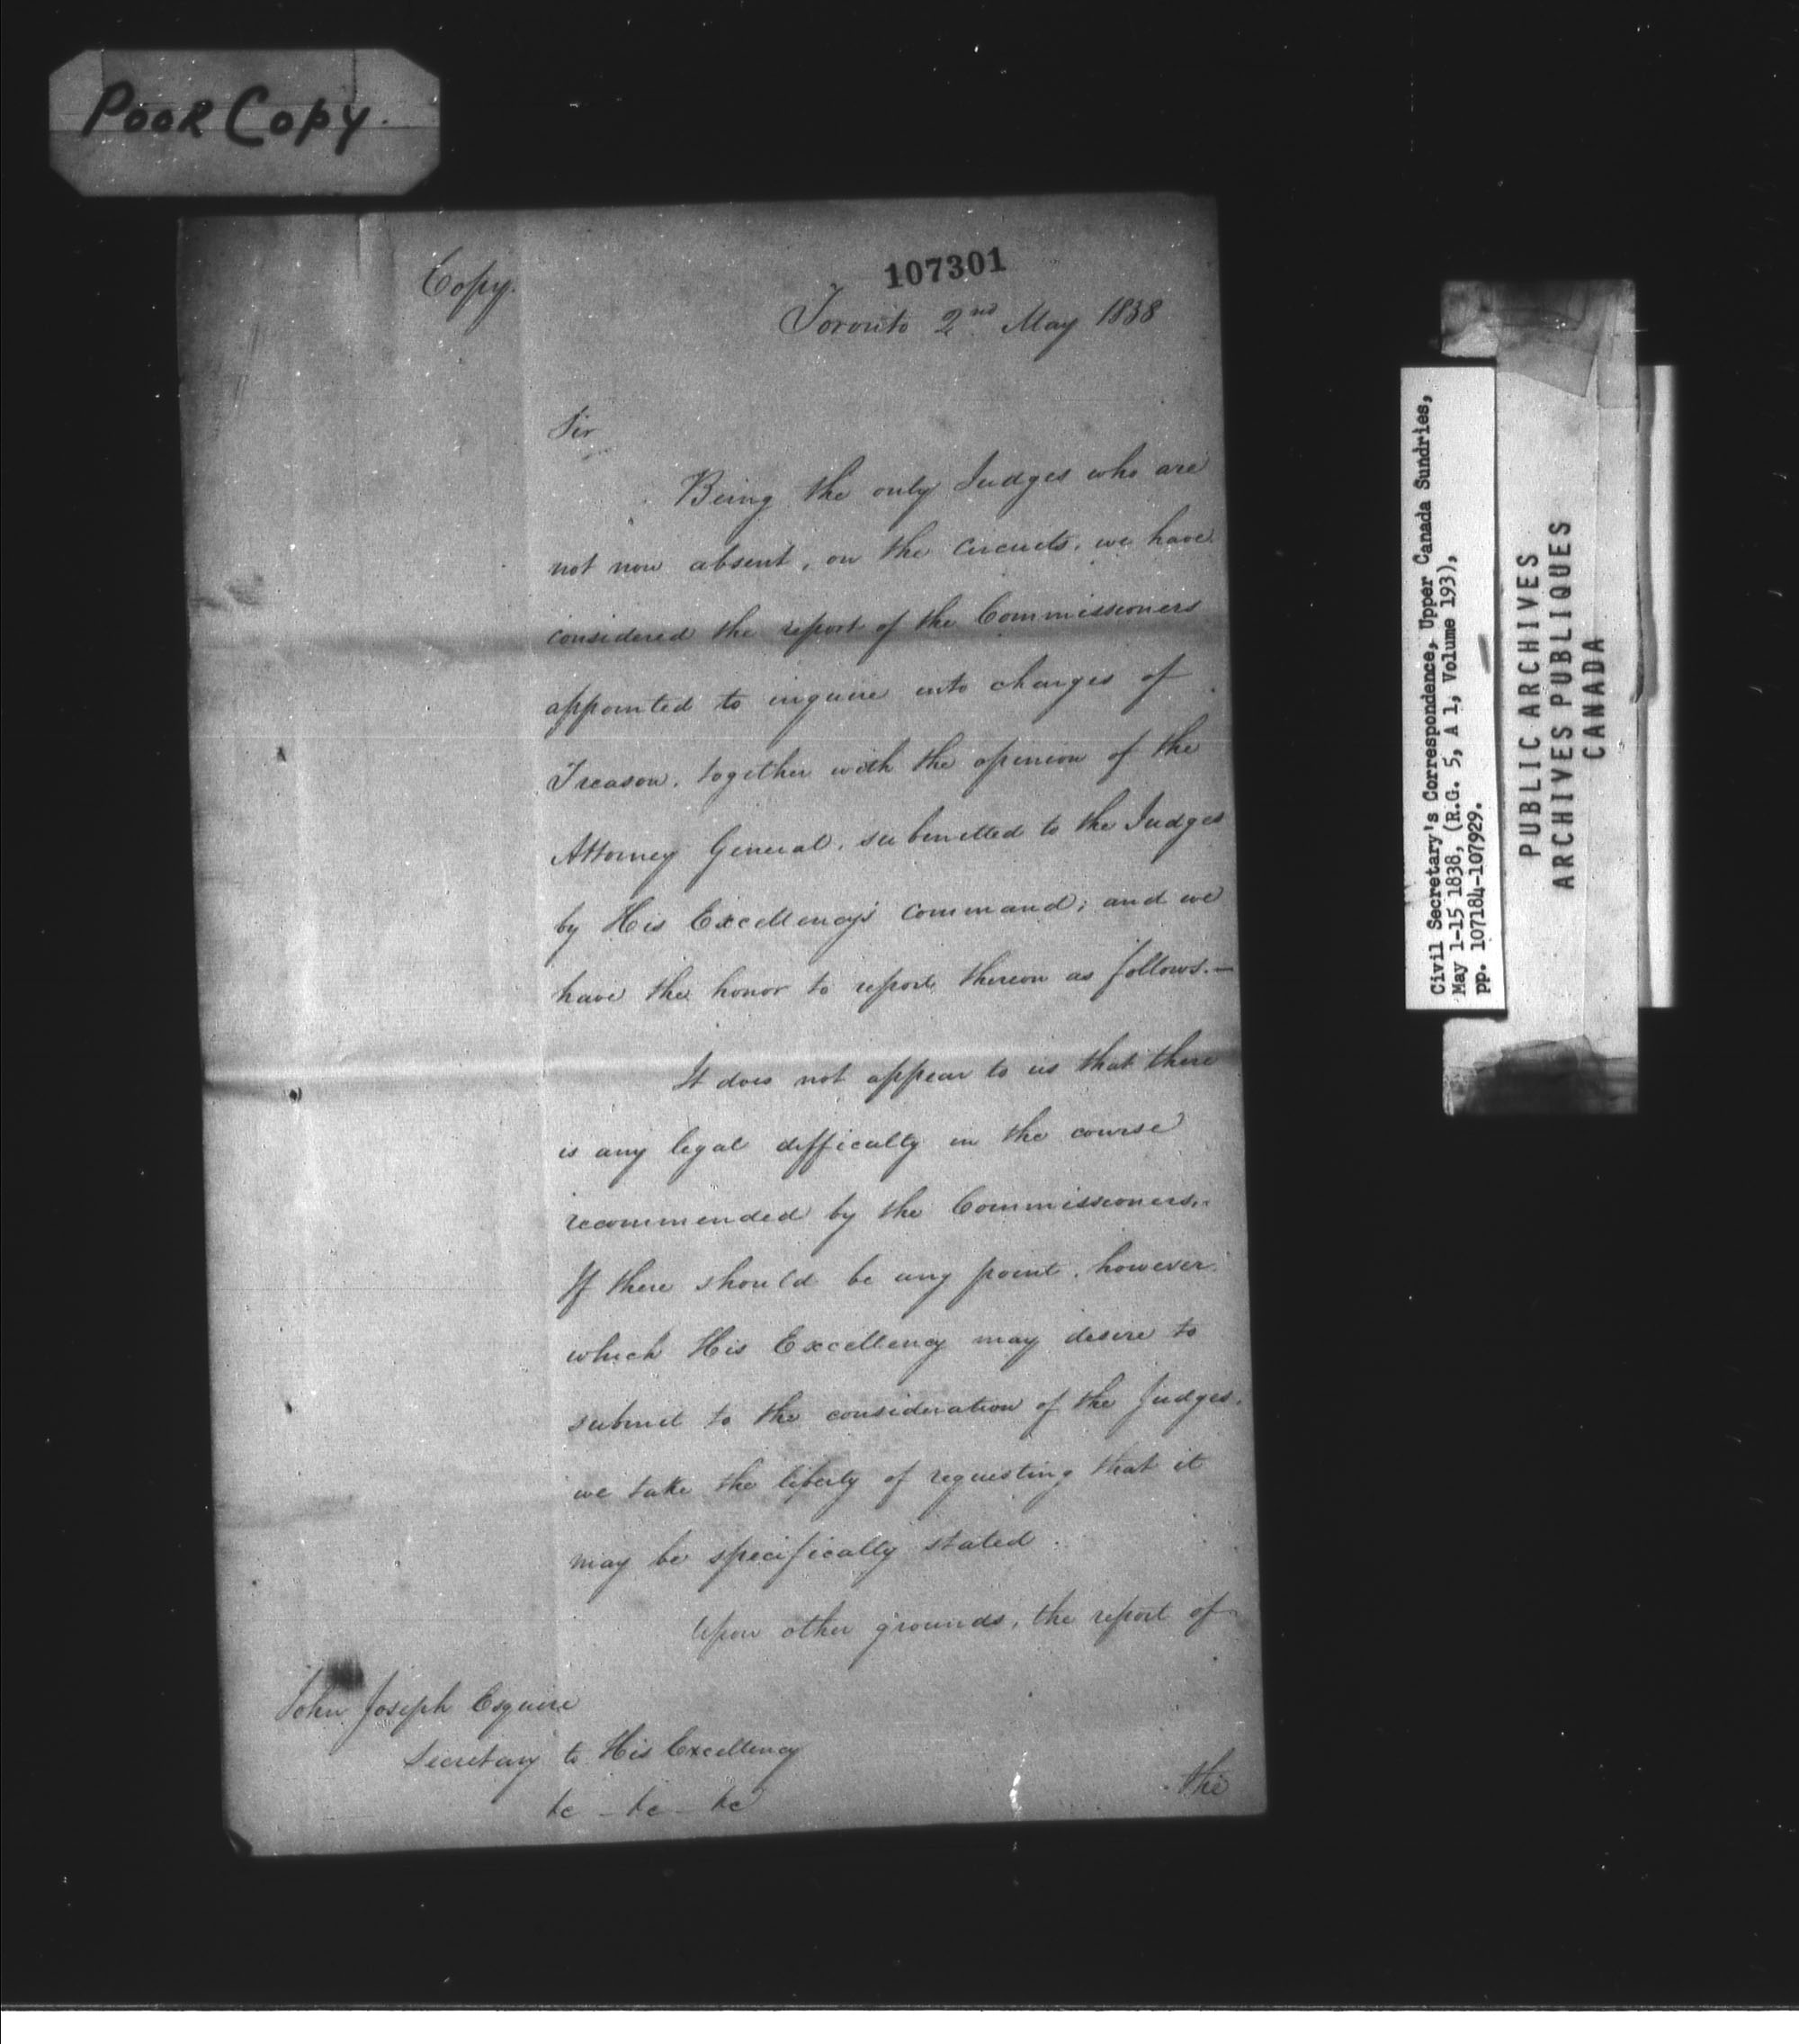 Poor Copy.
Copy.
107301
Toronto 2nd May 1838
Sir
Being the only Judges who are
not now absent, on the Circuits, we have
considered the report of the Commissioners
appointed to inquire into charges of
Treason, together with the opinion of the
Attorney General, submitted to the Judges
by His Excellency's command; and we
have the honor to report thereon as follows.—
It does not appear to us that there
is any legal difficulty in the course
recommended by the Commissioners.
If there should be any point, however,
which His Excellency may desire to
submit to the consideration of the Judges,
we take the liberty of requesting that it
may be specifically stated.
Upon other grounds, the report of
John Joseph Esquire
Secretary to His Excellency
&c - &c - &c
the
Civil Secretary's Correspondence, Upper Canada Sundries,
May 1-15 1838, (R.G. 5, A 1, Volume 193),
pp. 107184-107929.
PUBLIC ARCHIVES
ARCHIVES PUBLIQUES
CANADA